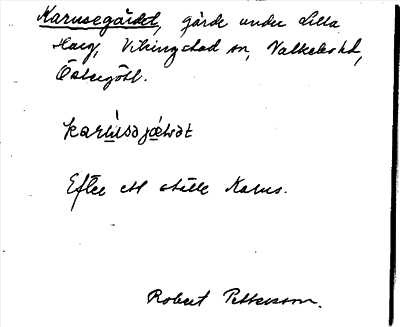 Karusegärdet, gärde under Lilla
Haag, Vikingstad sn, Valkebo hd,
Östergötl.
Efter ett ställe Karus.
Robert Pettersson.